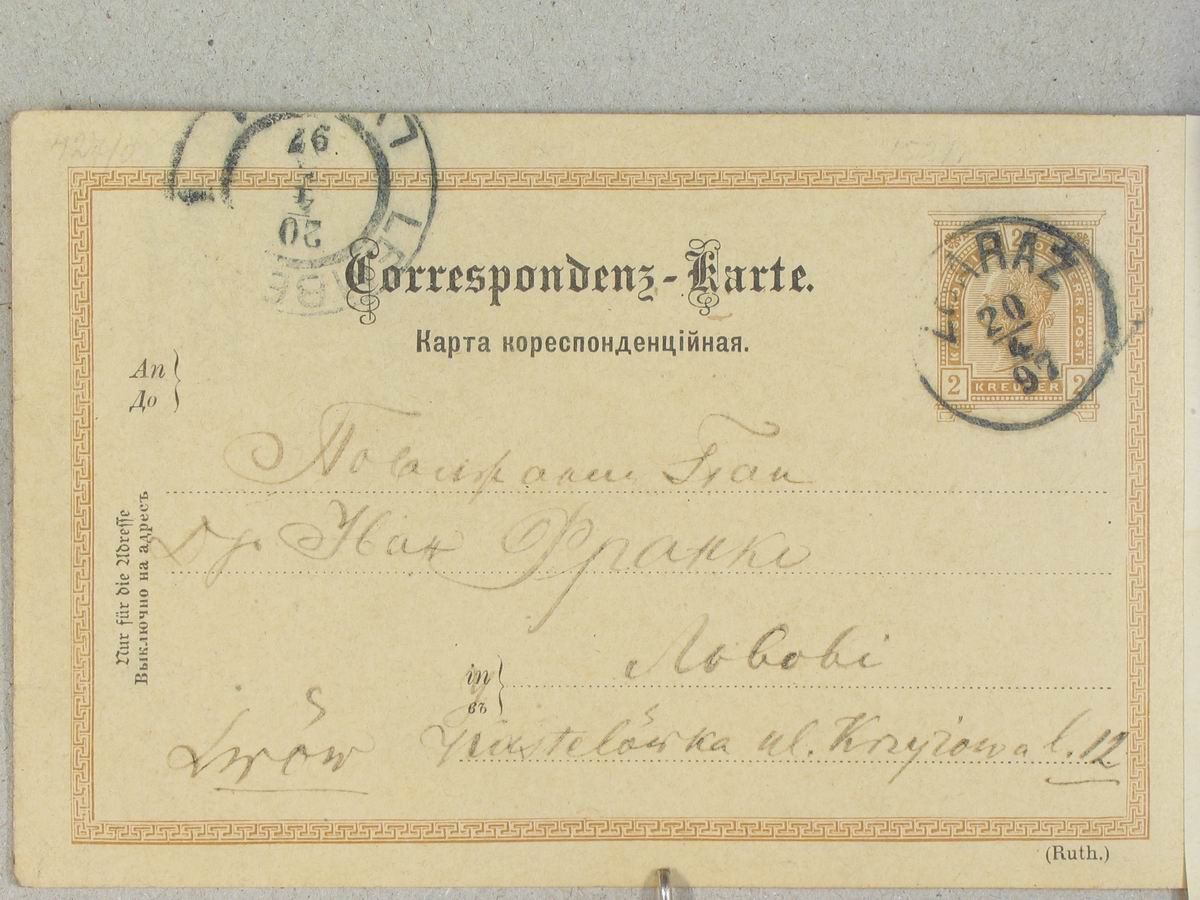 Correspondenz-Karte.
Карта кореспонденційная.
ZBARAŻ
20/4
97
2 KREUZER 2
LEMBERG
20
97
An
До
Nur für die Adresse
Выключно на адресъ
Пан
Др Іван Франко
in
въ
Львові
Lwów
Kastelówka ul. Krzyżowa l. 12
(Ruth.)